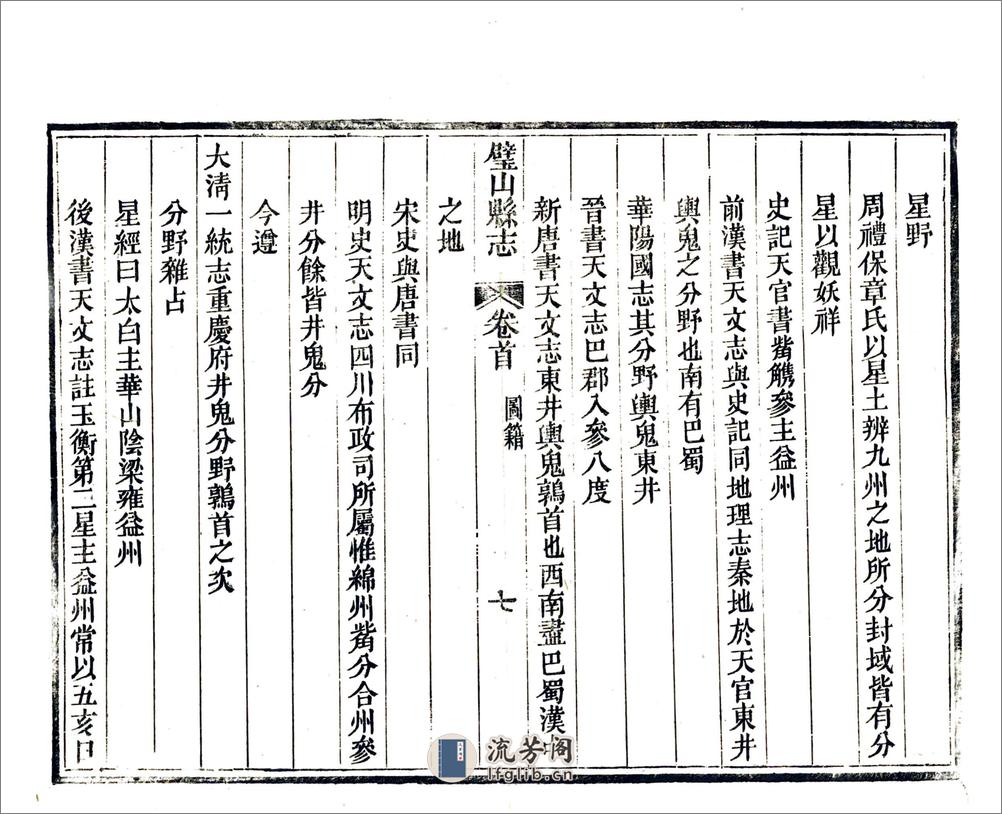 星野
周禮保章氏以星土辨九州之地所分封域皆有分
星以觀妖祥
史記天官書觜觽參主益州
前漢書天文志與史記同地理志秦地於天官東井
輿鬼之分野也南有巴蜀
華陽國志其分野輿鬼東井
晉書天文志巴郡入參八度
新唐書天文志東井輿鬼鶉首也西南盡巴蜀漢中
璧山縣志
卷首
圖籍
七
之地
宋史與唐書同
明史天文志四川布政司所屬惟綿州觜分合州參
井分餘皆井鬼分
今遵
大淸一統志重慶府井鬼分野鶉首之次
分野雜占
星經曰太白主華山陰梁雍益州
後漢書天文志註玉衡第二星主益州常以五亥日
流芳閣
lfglib.cn